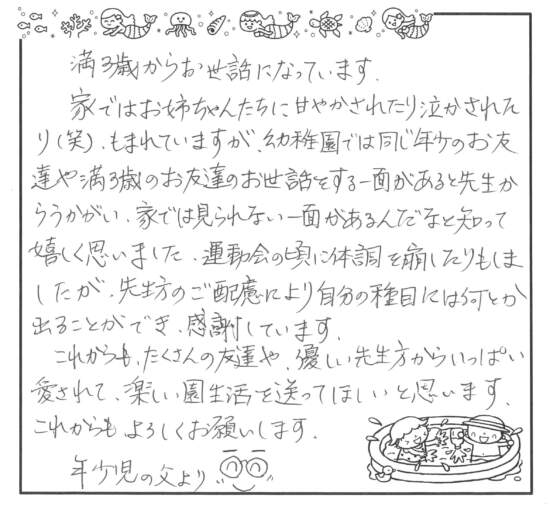 満3歳からお世話になっています.
家ではお姉ちゃんたちに甘やかされたり泣かされた
り(笑)、もまれていますが、幼稚園では同じ年少のお友
達や満3歳のお友達のお世話をする一面があると先生か
らうかがい、家では見られない一面があるんだなと知って
嬉しく思いました. 運動会の頃に体調を崩したりもしま
したが、先生方のご配慮により自分の種目には何とか
出ることができ、感謝しています.
これからも、たくさんの友達や、優しい先生方からいっぱい
愛されて、楽しい園生活を送ってほしいと思います.
これからもよろしくお願いします.
年少児の父より